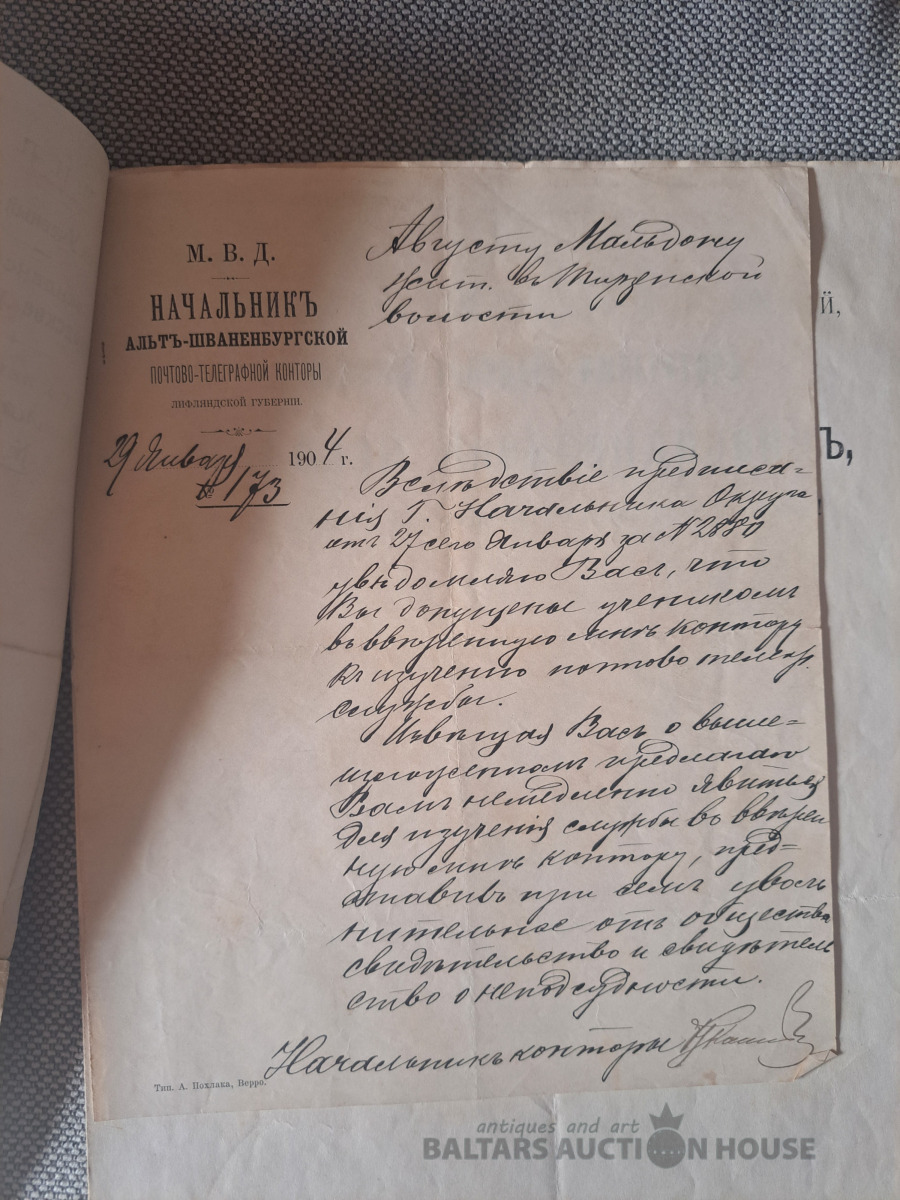 М. В. Д.
НАЧАЛЬНИКЪ
АЛЬТЪ-ШВАНЕНБУРГСКОЙ
ПОЧТОВО-ТЕЛЕГРАФНОЙ КОНТОРЫ
ЛИФЛЯНДСКОЙ ГУБЕРНІИ.
29 Января 1904 г.
№ 173
Августу Мальдону
жит. въ Тирзенской
волости
Вслѣдствіе предписа-
нія Г. Начальника Округа
отъ 27 сего Января за № 2880
увѣдомляю Васъ, что
Вы допущены ученикомъ
въ ввѣренную мнѣ контору
къ изученію почтово телегр.
службы.
Извѣщая Васъ о выше-
изложенномъ предлагаю
Вамъ немедленно явиться
для изученія службы во ввѣрен
ную мнѣ контору, пред-
ставивъ при семъ уволь
нительное отъ общества
свидѣтельство и свидѣтель
ство о неподсудности.
Начальникъ конторы
Тип. А. Похлака, Верро.
Й,
Ъ,
antiques and art
BALTARS AUCTION HOUSE